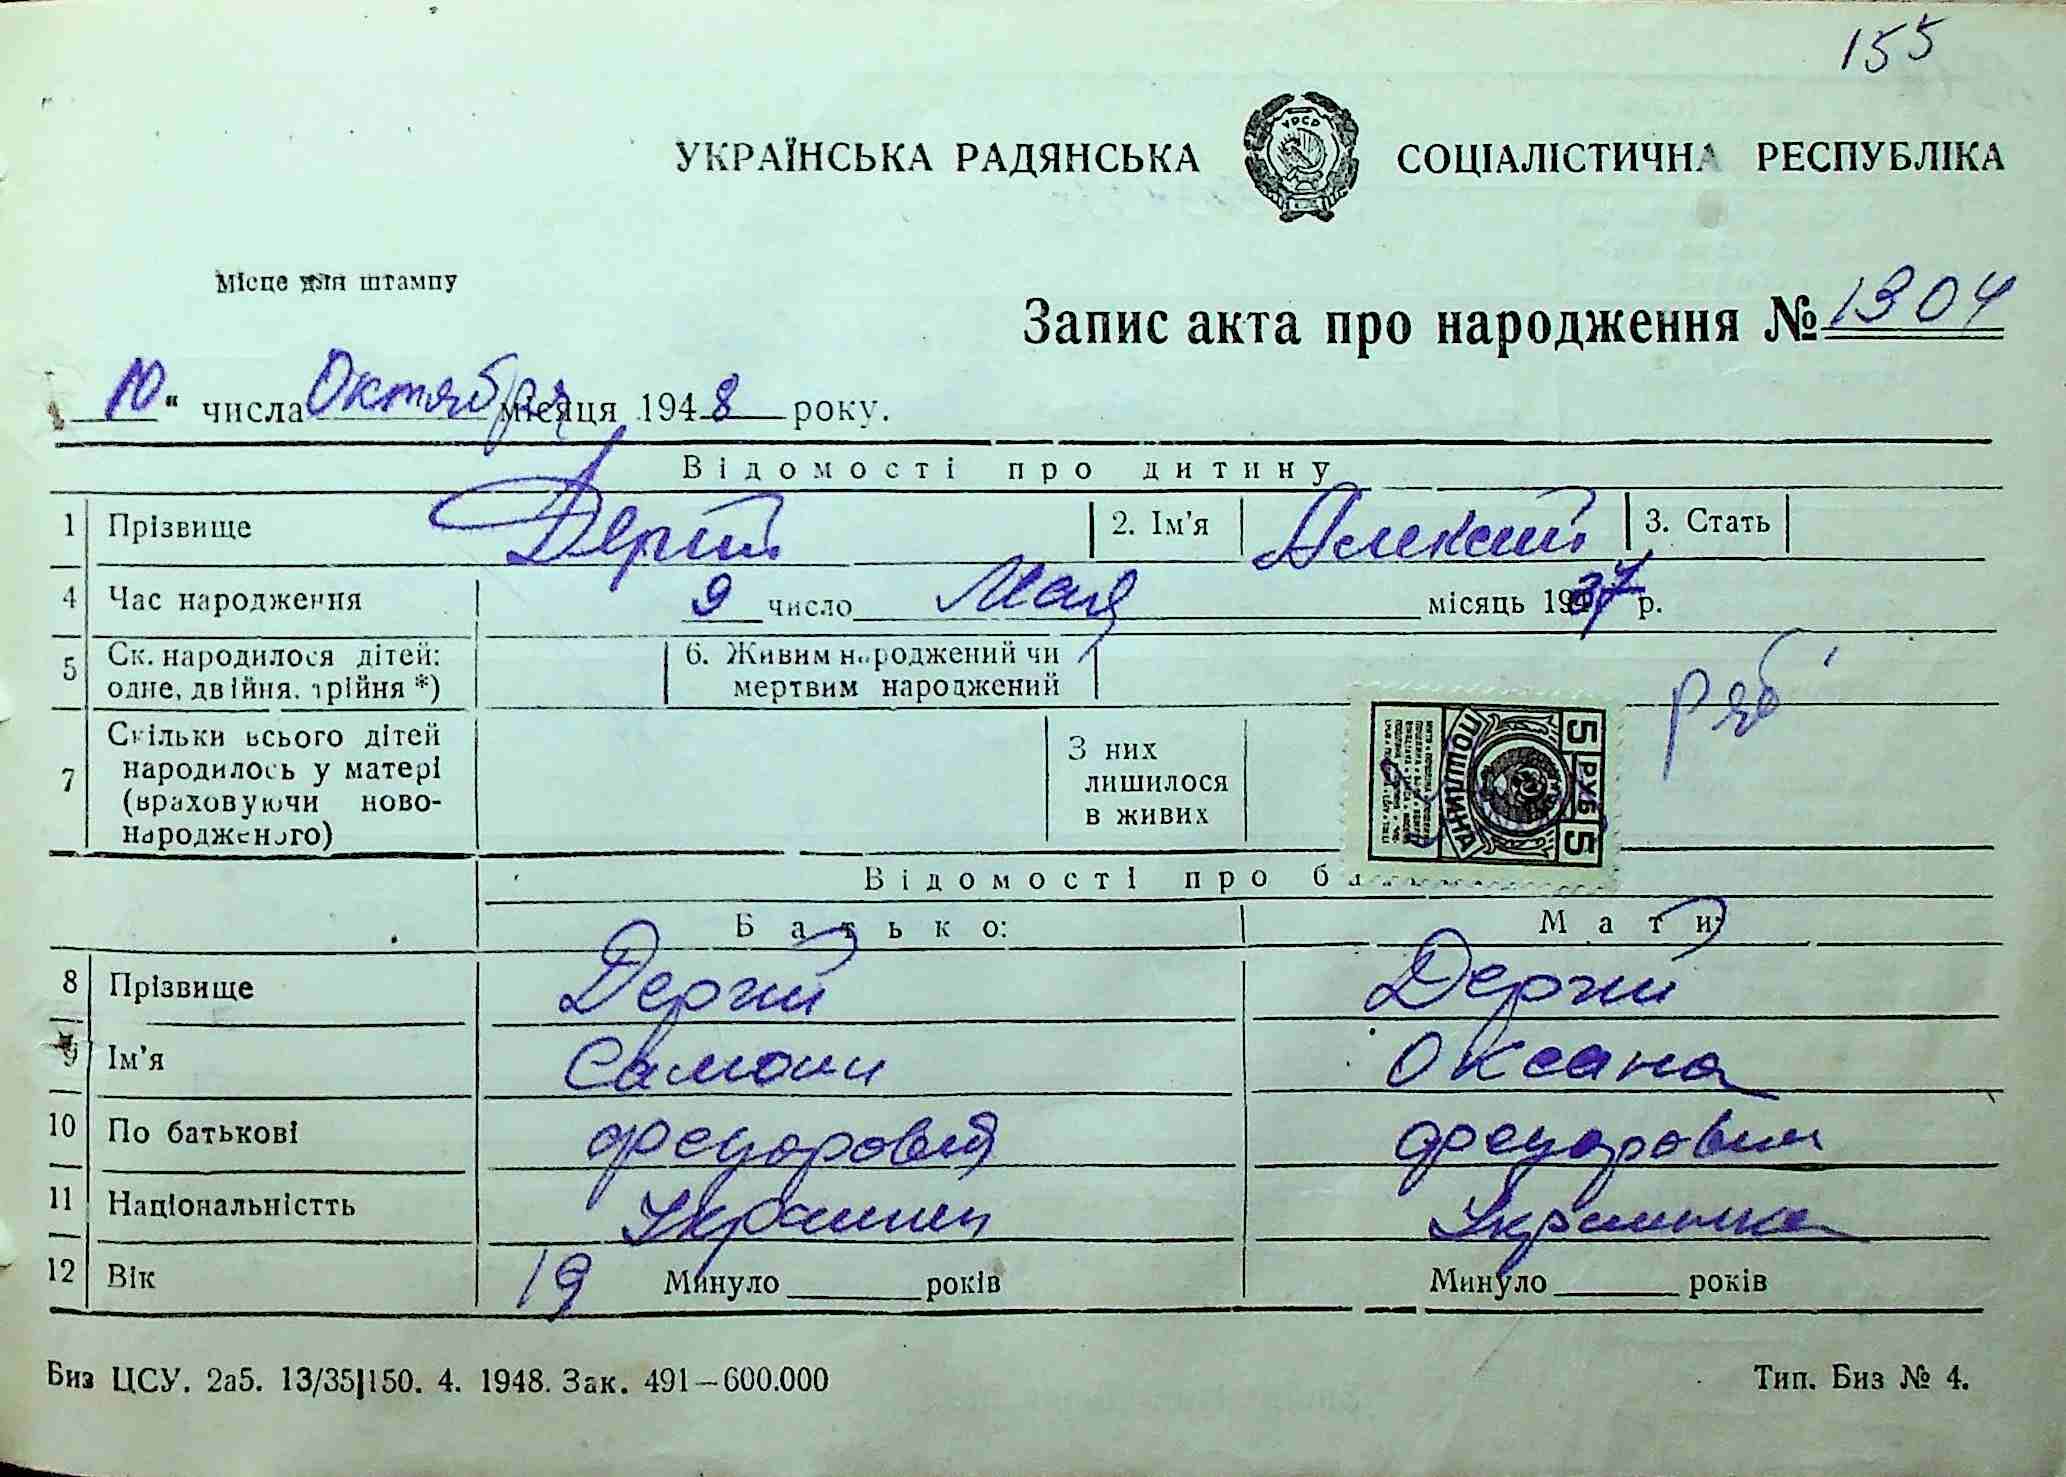 155
УКРАЇНСЬКА РАДЯНСЬКА СОЦІАЛІСТИЧНА РЕСПУБЛІКА
УРСР
Місце для штампу
Запис акта про народження № 1304
10 " числа Октября місяця 1948 року.
Відомості про дитину
1 Прізвище 2. Ім'я Алексий 3. Стать
4 Час народження 9 число Мая місяць 1937 р.
5 Ск. народилося дітей: одне, двійня, трійня *) 6. Живим народжений чи мертвим народжений
7 Скільки всього дітей народилось у матері (враховуючи ново-народженого) З них лишилося в живих
5 РУБ 5
ПОШЛИНА
Відомості про
Батько: Мати:
8 Прізвище Дергий Дергий
9 Ім'я Самоил Оксана
10 По батькові Федорович Федоровна
11 Національністть Украинец Украинка
12 Вік 19 Минуло років Минуло років
Биз ЦСУ. 2а5. 13/35|150. 4. 1948. Зак. 491—600.000 Тип. Биз № 4.